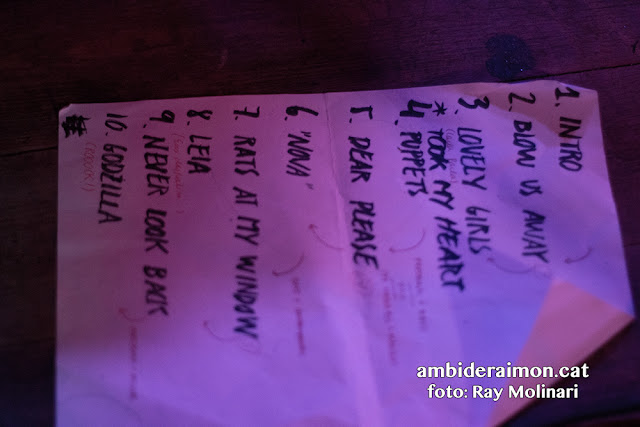 1. INTRO
2. BLOW US AWAY
3. LOVELY GIRLS
* TOOK MY HEART
4. PUPPETS
5. DEAR PLEASE
6. "NOVA"
7. RATS AT MY WINDOW
8. LEIA
9. NEVER LOOK BACK
10. GODZILLA
ambideraimon.cat
foto: Ray Molinari